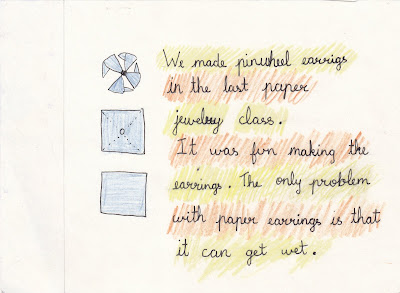 We made pinwheel earrigs
in the last paper
jewelry class.
It was fun making the
earrings. The only problem
with paper earrings is that
it can get wet.